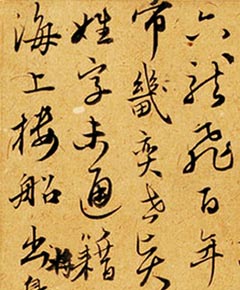 六龍飛百年
帝畿奕
姓字未通籍
海上樓船出